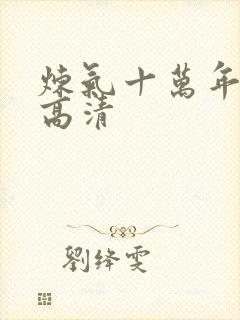 煉氣十萬年
高清
劉绛雯